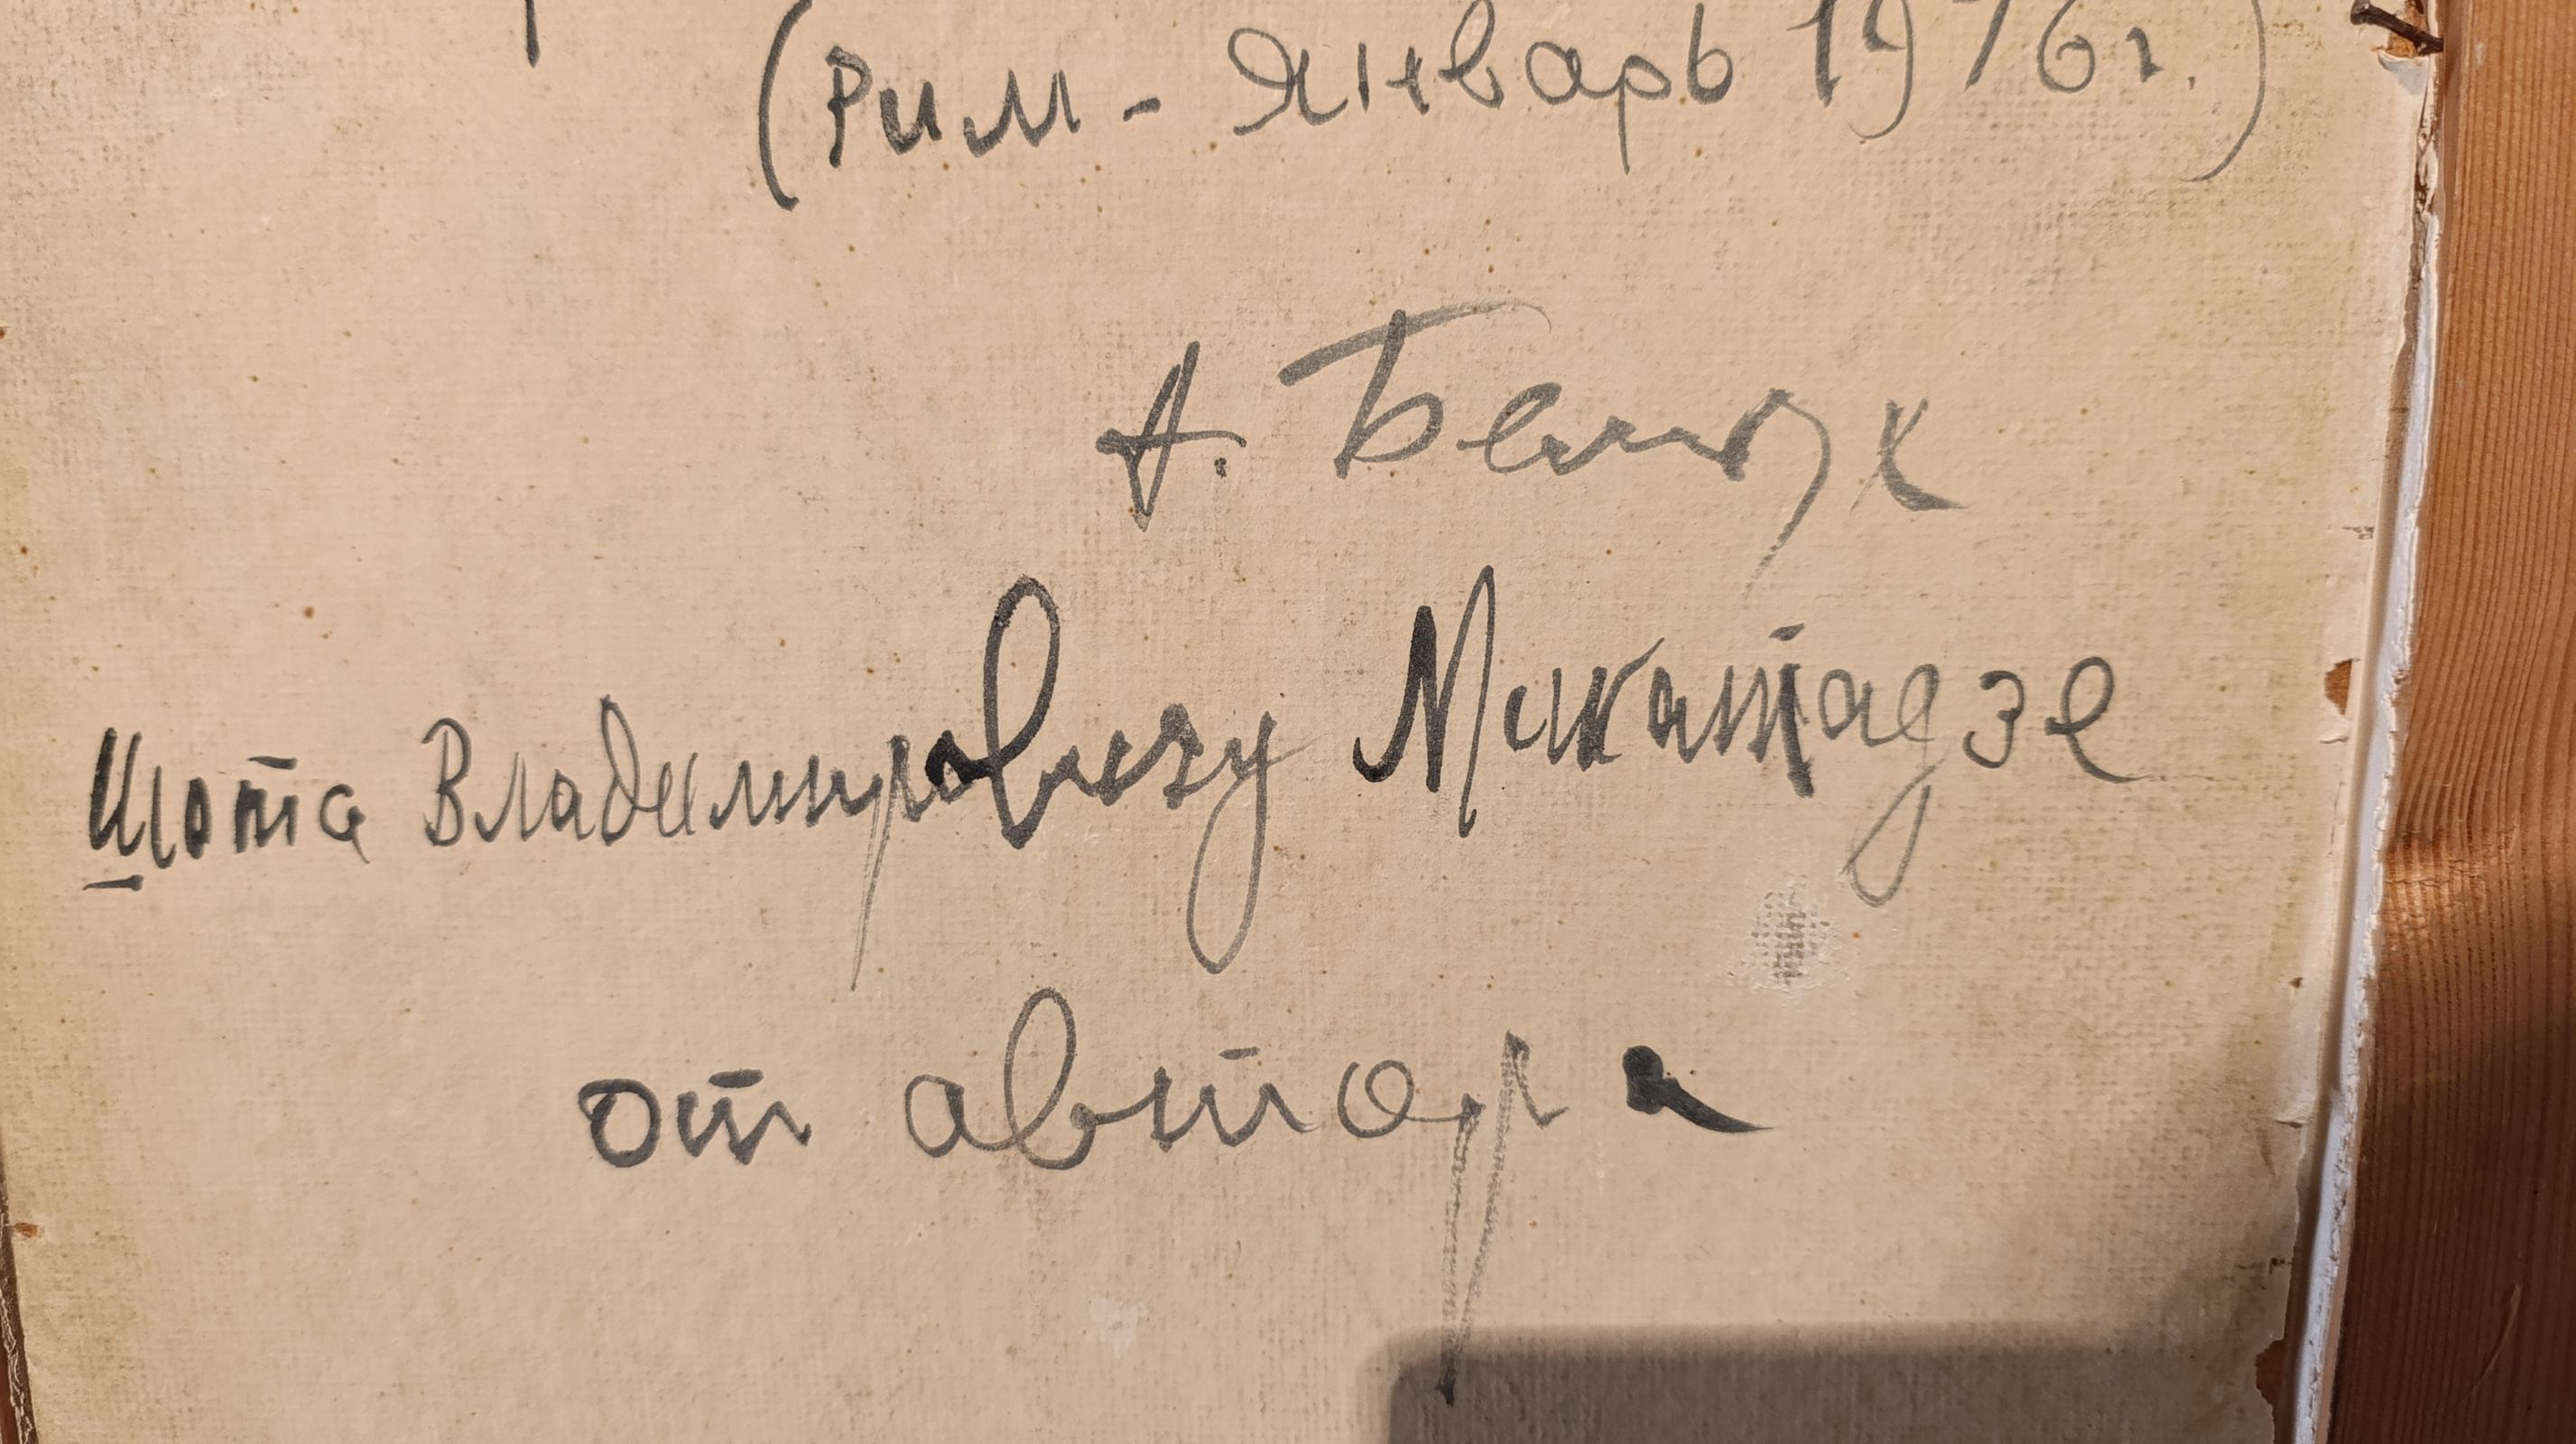 (Рим - Январь 1976 г.)
А.
Шота Владимировичу Микатадзе
от автора